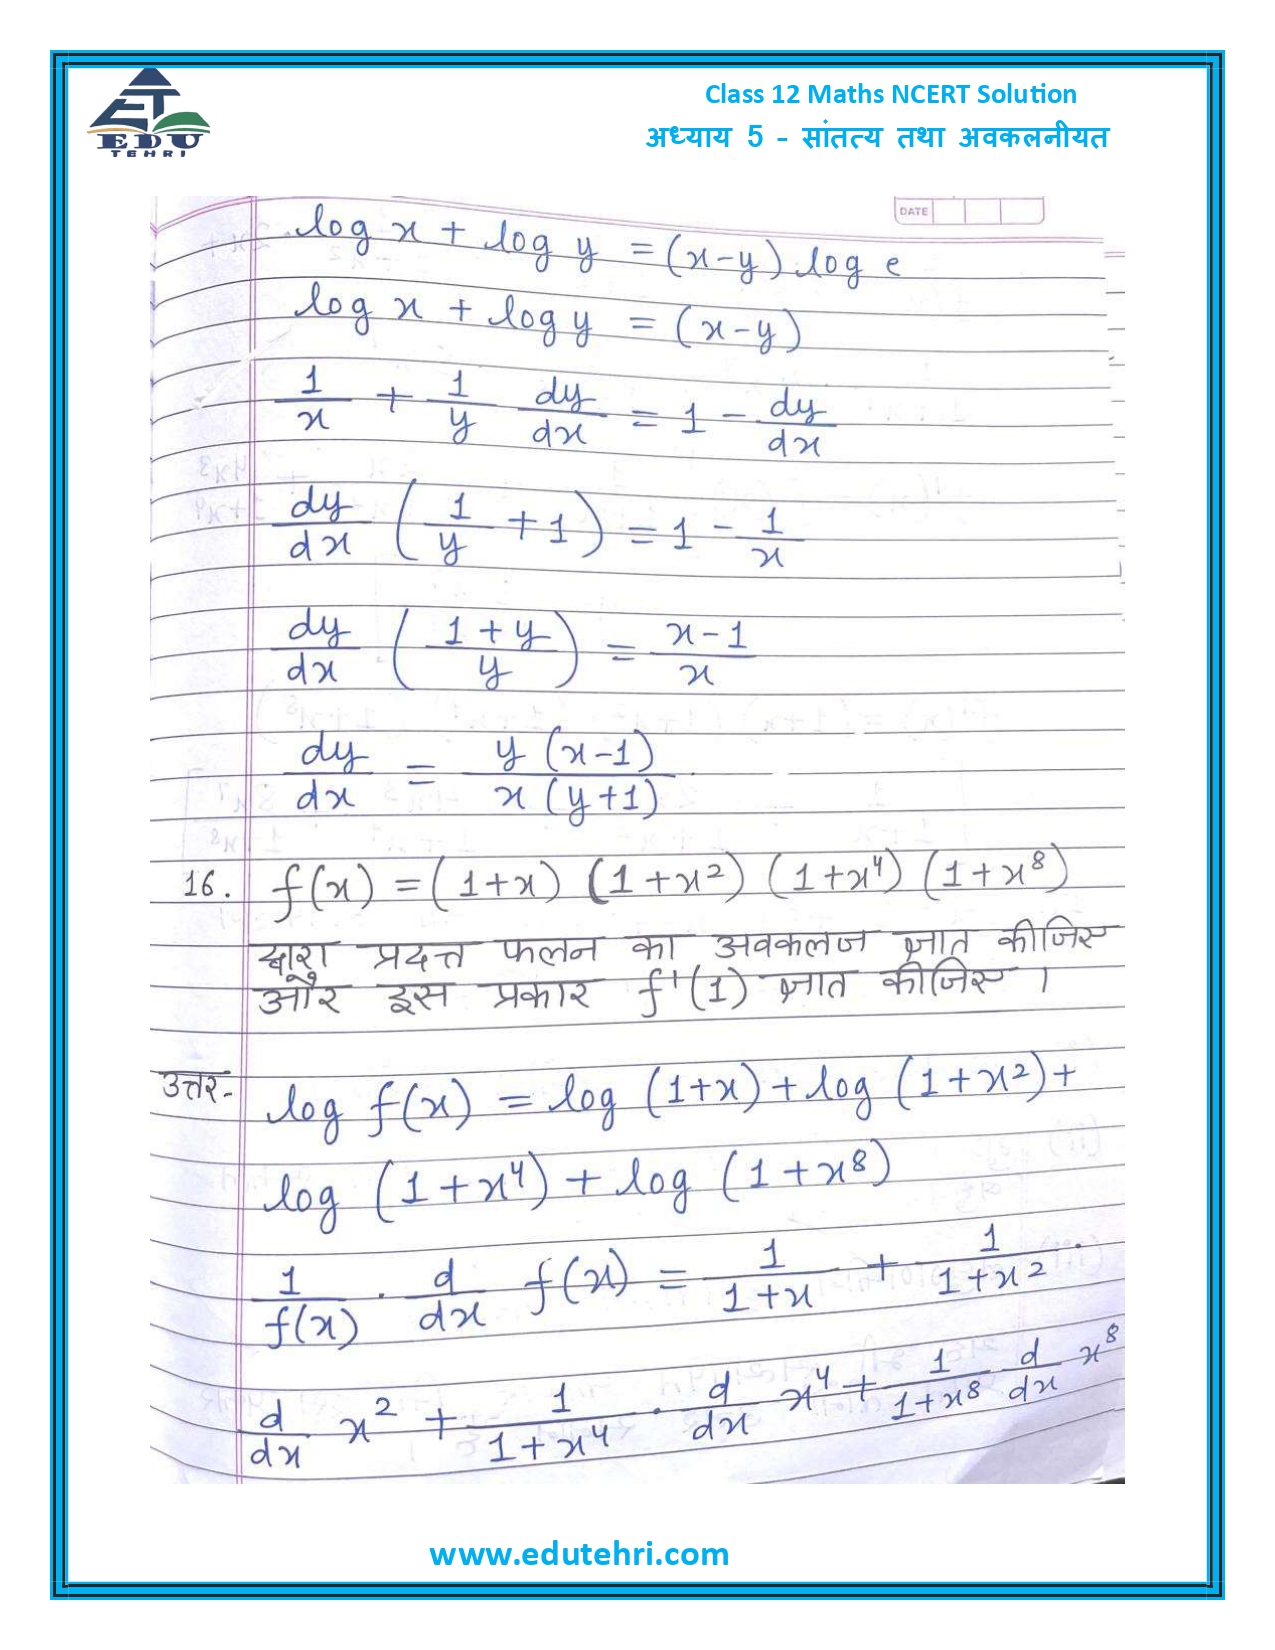 EDU
TEHRI
Class 12 Maths NCERT Solution
अध्याय 5 - सांतत्य तथा अवकलनीयत
DATE
log x + log y = (x-y) log e
log x + log y = (x-y)
1/x + 1/y dy/dx = 1 - dy/dx
dy/dx (1/y + 1) = 1 - 1/x
dy/dx ((1+y)/y) = (x-1)/x
dy/dx = y(x-1)/x(y+1)
16. f(x) = (1+x) (1+x²) (1+x⁴) (1+x⁸)
द्वारा प्रदत्त फलन का अवकलज ज्ञात कीजिए
और इस प्रकार f'(1) ज्ञात कीजिए ।
उत्तर- log f(x) = log (1+x) + log (1+x²) +
log (1+x⁴) + log (1+x⁸)
1/f(x) · d/dx f(x) = 1/(1+x) + 1/(1+x²) ·
d/dx x² + 1/(1+x⁴) · d/dx x⁴ + 1/(1+x⁸) d/dx x⁸
www.edutehri.com